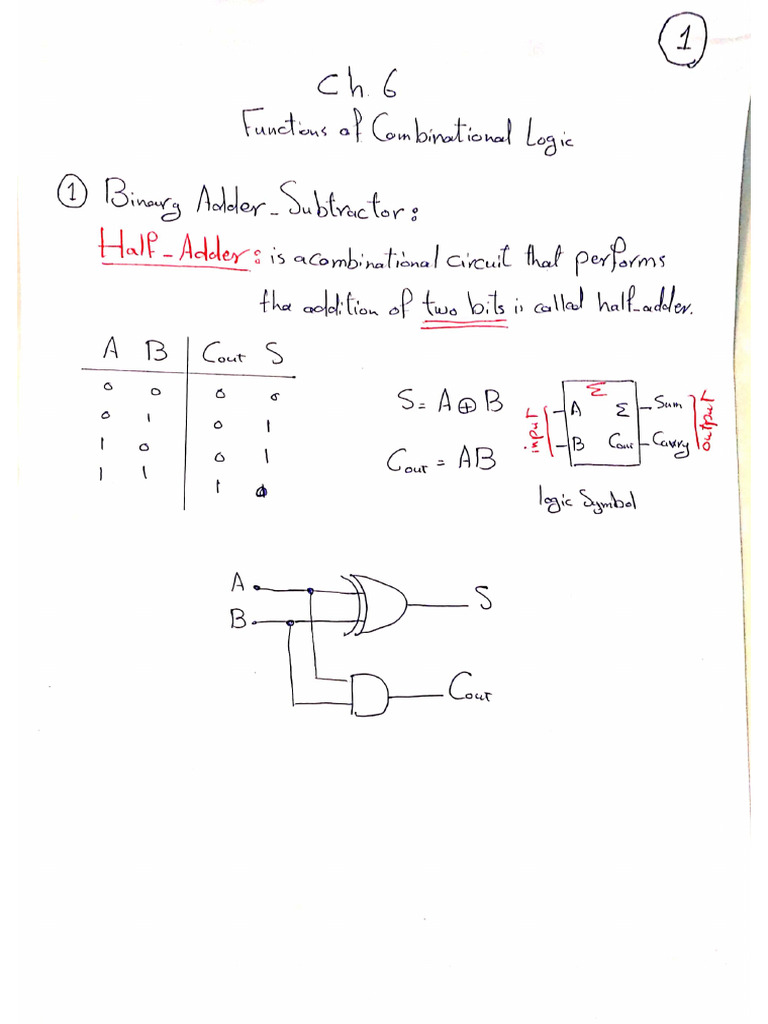 1
Ch. 6
Functions of Combinational Logic
① Binary Adder_Subtractor:
Half_Adder: is a combinational circuit that performs
the addition of two bits is called half_adder.
A B Cout S
0 0 0 0
0 1 0 1
1 0 0 1
1 1 1 0
S = A ⊕ B
Cout = AB
input
Σ
A Σ Sum
B Cout Carry
output
logic Symbol
A
B
S
Cout